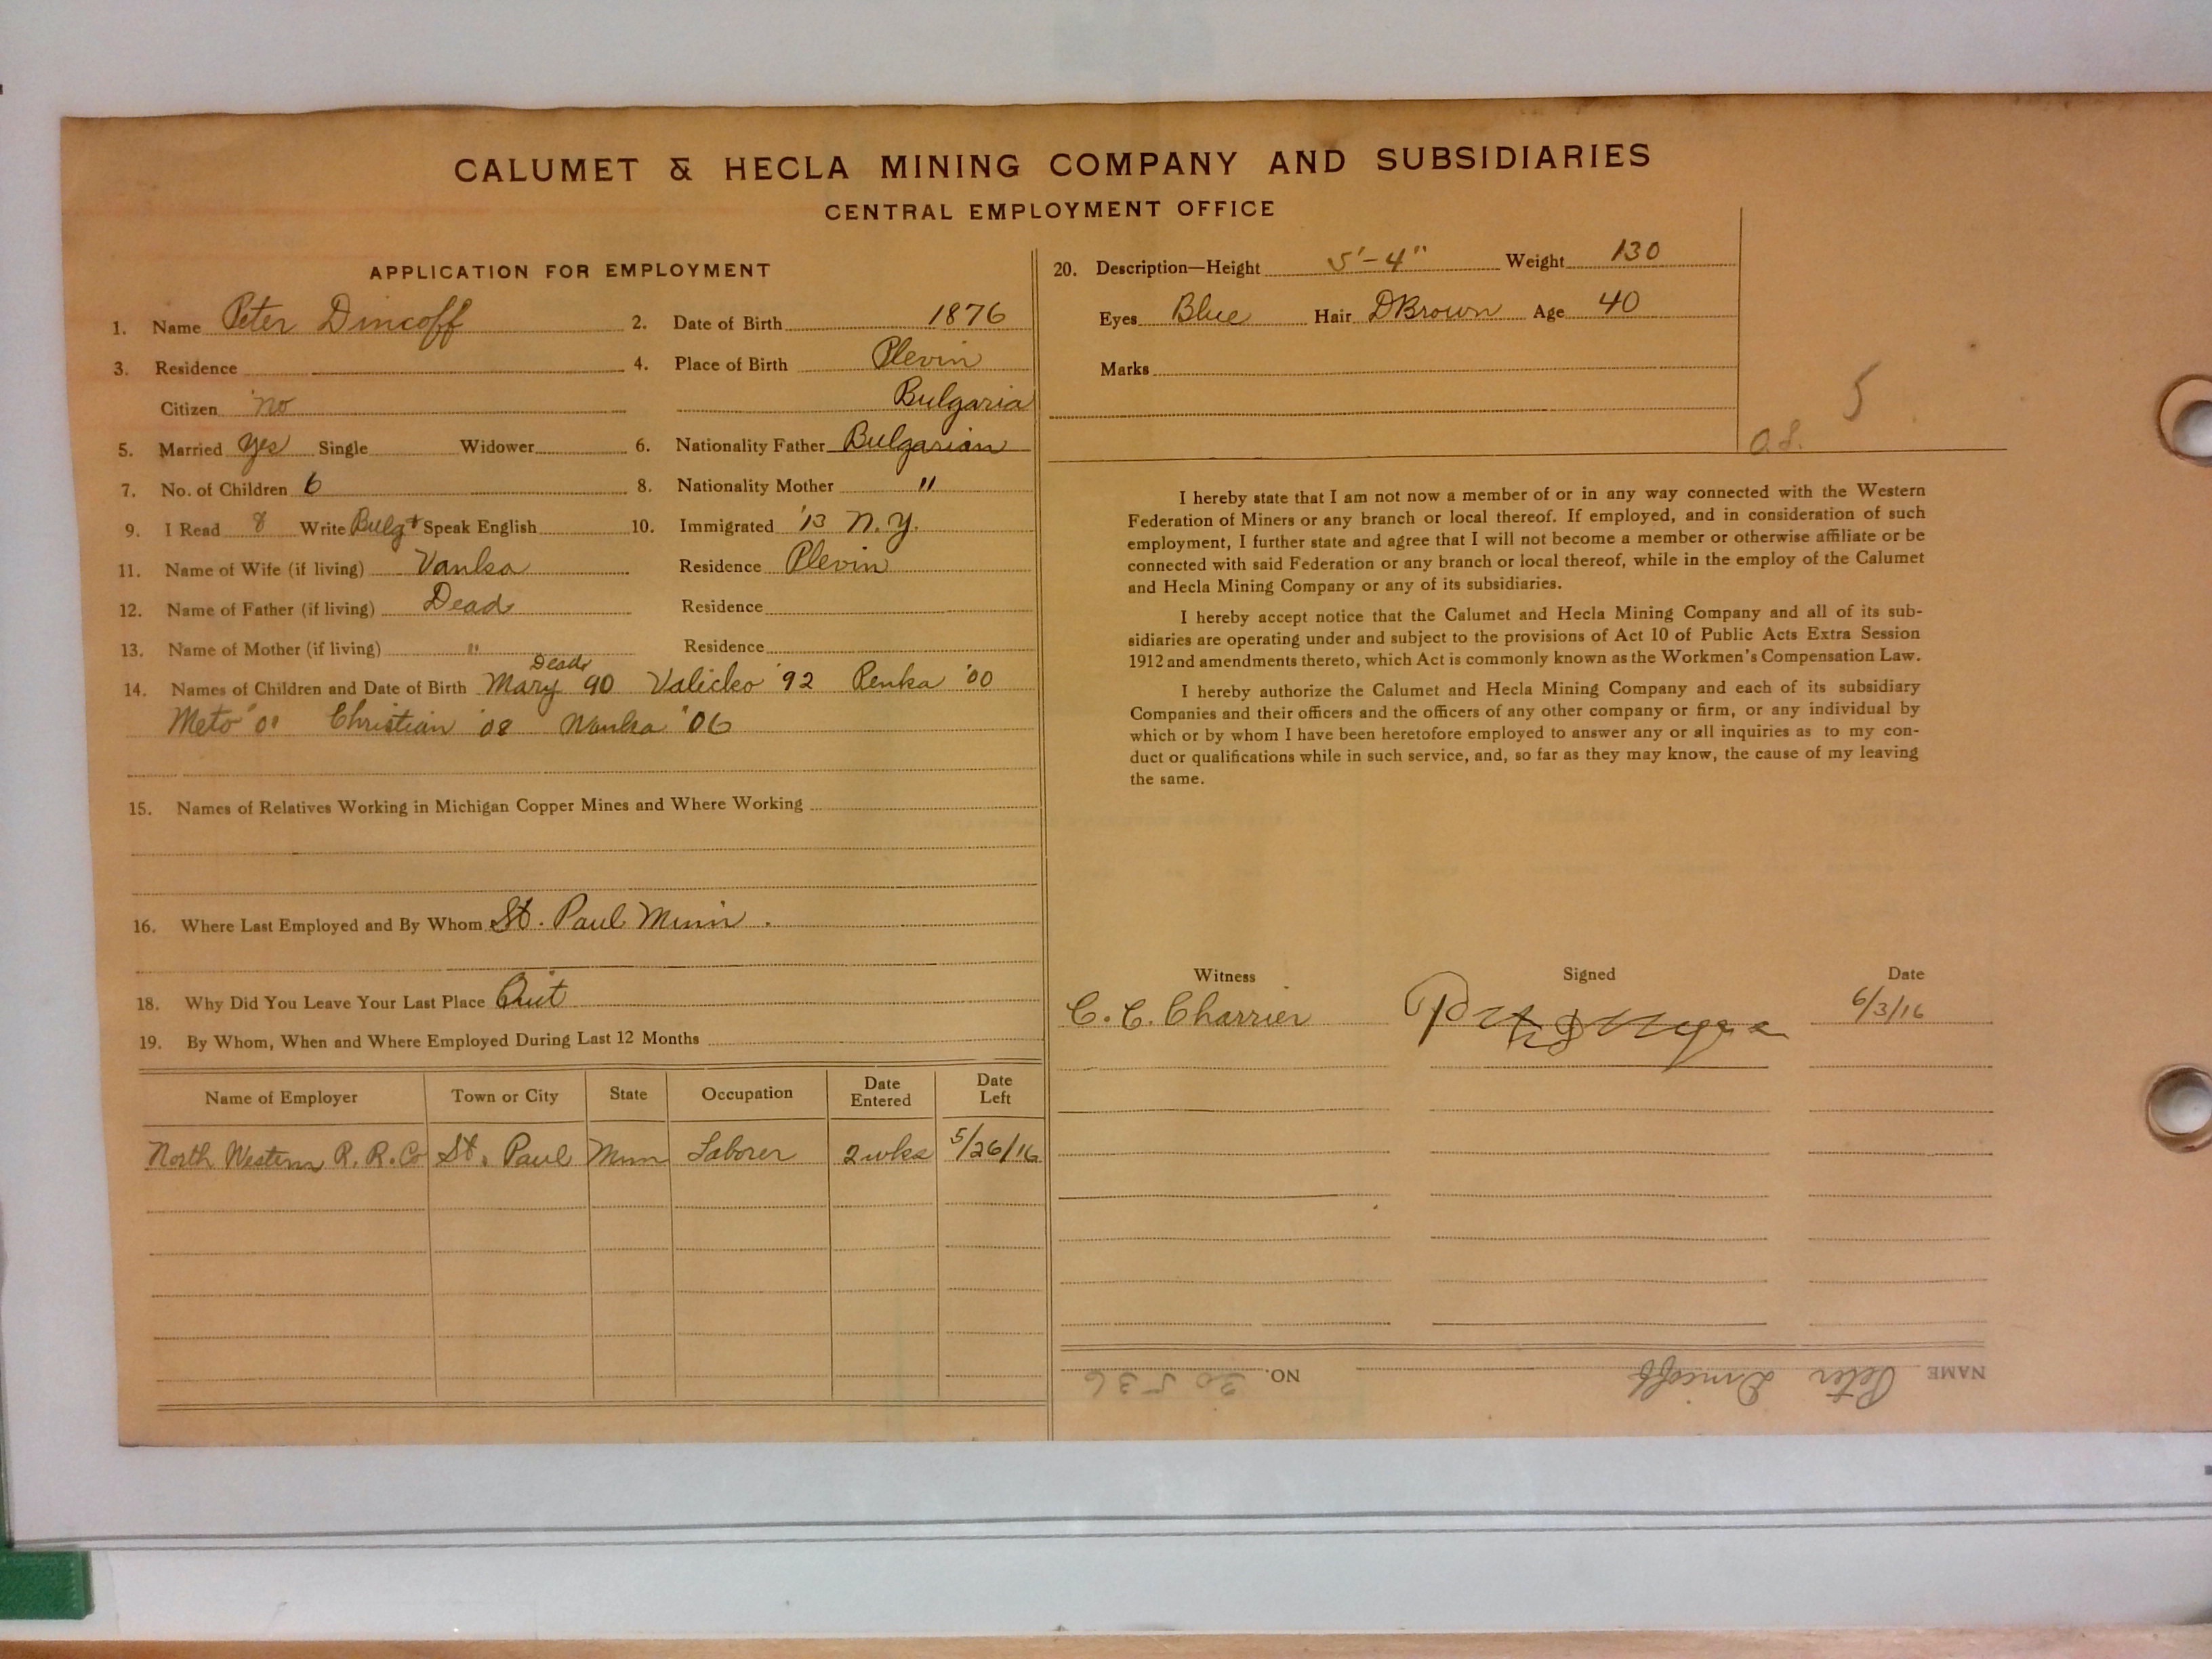 CALUMET & HECLA MINING COMPANY AND SUBSIDIARIES
CENTRAL EMPLOYMENT OFFICE
APPLICATION FOR EMPLOYMENT
1. Name Peter Dincoff 2. Date of Birth 1876
3. Residence 4. Place of Birth Plevin
Citizen no Bulgaria
5. Married yes Single Widower 6. Nationality Father Bulgarian
7. No. of Children 6 8. Nationality Mother "
9. I Read & Write Bulg + Speak English 10. Immigrated '13 N.Y.
11. Name of Wife (if living) Vanka Residence Plevin
12. Name of Father (if living) Dead Residence
13. Name of Mother (if living) " Residence
Dead
14. Names of Children and Date of Birth Mary 90 Valicko '92 Penka '00
Meto Christian '08 '06
15. Names of Relatives Working in Michigan Copper Mines and Where Working
16. Where Last Employed and By Whom St. Paul Minn.
18. Why Did You Leave Your Last Place Quit
19. By Whom, When and Where Employed During Last 12 Months
Name of Employer Town or City State Occupation Date Entered Date Left
North Western R. R. Co St. Paul Minn Laborer 2 wks 5/26/16
20. Description—Height 5'-4" Weight 130
Eyes Blue Hair DBrown Age 40
Marks
5
O.S.
I hereby state that I am not now a member of or in any way connected with the Western
Federation of Miners or any branch or local thereof. If employed, and in consideration of such
employment, I further state and agree that I will not become a member or otherwise affiliate or be
connected with said Federation or any branch or local thereof, while in the employ of the Calumet
and Hecla Mining Company or any of its subsidiaries.
I hereby accept notice that the Calumet and Hecla Mining Company and all of its sub-
sidiaries are operating under and subject to the provisions of Act 10 of Public Acts Extra Session
1912 and amendments thereto, which Act is commonly known as the Workmen's Compensation Law.
I hereby authorize the Calumet and Hecla Mining Company and each of its subsidiary
Companies and their officers and the officers of any other company or firm, or any individual by
which or by whom I have been heretofore employed to answer any or all inquiries as to my con-
duct or qualifications while in such service, and, so far as they may know, the cause of my leaving
the same.
Witness Signed Date
C. C. Charrier 6/3/16
NAME Peter Dincoff NO. 30536